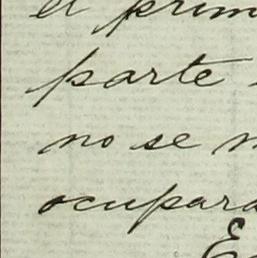 el prim
parte
no se
ocupara